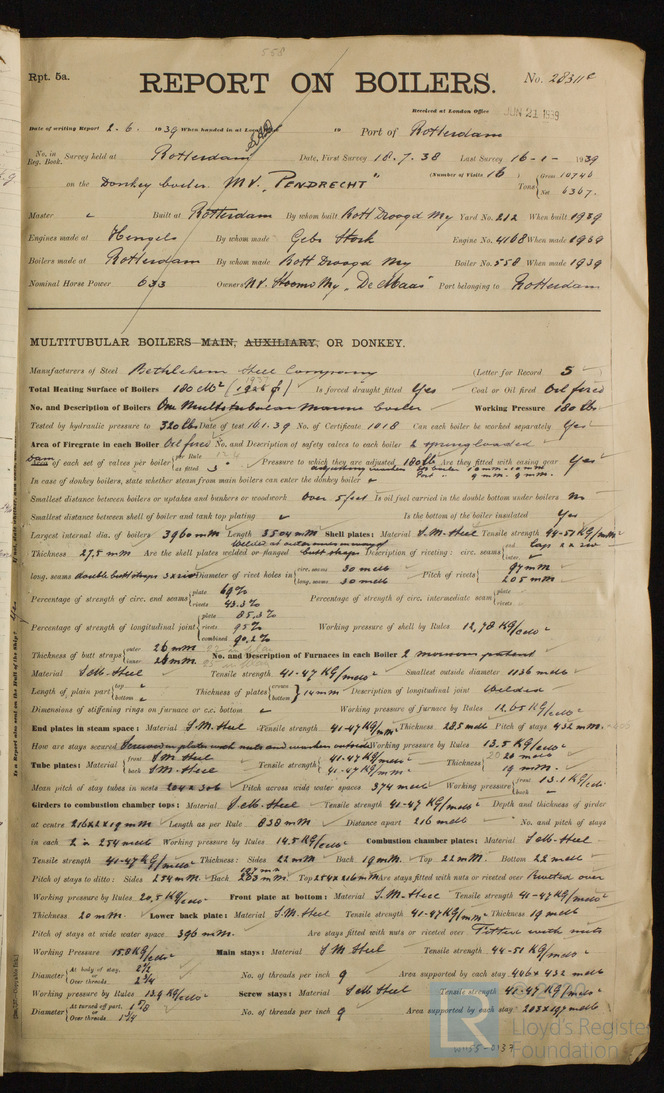 558
Rpt. 5a.
REPORT ON BOILERS.
No. 28311c
Received at London Office JUN 21 1939
Date of writing Report 2-6-1939 When handed in at Local 19 Port of Rotterdam
No. in Reg. Book. Survey held at Rotterdam Date, First Survey 18.7.38 Last Survey 16-1-1939
on the Donkey boiler. MV. "PENDRECHT" (Number of Visits 16) Tons { Gross 10746 Net 6367.
Master Built at Rotterdam By whom built Rott Droogd My Yard No. 212 When built 1939
Engines made at Hengelo By whom made Gebr Stork Engine No. 4168 When made 1939
Boilers made at Rotterdam By whom made Rott Droogd My Boiler No. 558 When made 1939
Nominal Horse Power 633 Owners NV. Stoomv My. "De Maas" Port belonging to Rotterdam
MULTITUBULAR BOILERS MAIN, AUXILIARY, OR DONKEY.
Manufacturers of Steel Bethlehem Steel Company (Letter for Record S)
Total Heating Surface of Boilers 180 M² Is forced draught fitted Yes Coal or Oil fired Oil fired
No. and Description of Boilers One Multitubular marine boiler Working Pressure 180 lbs
Tested by hydraulic pressure to 320 lbs Date of test 16.1.39 No. of Certificate 1018 Can each boiler be worked separately Yes
Area of Firegrate in each Boiler Oil fired No. and Description of safety valves to each boiler 2 springloaded
of each set of valves per boiler { per Rule as fitted 3" Pressure to which they are adjusted 180 lb Are they fitted with easing gear Yes
In case of donkey boilers, state whether steam from main boilers can enter the donkey boiler
Smallest distance between boilers or uptakes and bunkers or woodwork Over 5 feet Is oil fuel carried in the double bottom under boilers No
Smallest distance between shell of boiler and tank top plating Is the bottom of the boiler insulated Yes
Largest internal dia. of boilers 3960 mM Length 3504 mM Shell plates: Material S.M-Steel Tensile strength 44-51 KG/mm²
Thickness 27.5 mM Are the shell plates welded or flanged Description of riveting: circ. seams { end Laps 2 x riv inter.
long. seams double butt straps 3 x riv Diameter of rivet holes in { circ. seams 30 mells long. seams 30 mells Pitch of rivets { 97 mM 205 mM
Percentage of strength of circ. end seams { plate 69% rivets 43.3% Percentage of strength of circ. intermediate seam { plate rivets
Percentage of strength of longitudinal joint { plate 85.3% rivets 95% combined 90.2% Working pressure of shell by Rules 12,78 KG/
Thickness of butt straps { outer 26 mM inner 26 mM No. and Description of Furnaces in each Boiler 2 morison patent
Material S.M-Steel Tensile strength 41-47 KG/ Smallest outside diameter 1136 mells
Length of plain part { top bottom Thickness of plates { crown bottom } 14 mm Description of longitudinal joint Welded
Dimensions of stiffening rings on furnace or c.c. bottom Working pressure of furnace by Rules 12.65 KG/
End plates in steam space: Material S.M.Steel Tensile strength 41-47 KG/ Thickness 28.5 mells Pitch of stays 432 mm.
How are stays secured Working pressure by Rules 13.5 KG/
Tube plates: Material { front S.M Steel back S.M-Steel Tensile strength { 41-47 KG/ 41-47 KG/ Thickness { 20 mells 19 mm.
Mean pitch of stay tubes in nests 204 x 306 Pitch across wide water spaces 374 mells Working pressure { front 13.1 KG/ back
Girders to combustion chamber tops: Material S.M-Steel Tensile strength 41-47 KG/ Depth and thickness of girder
at centre 216 x 2 x 19 mM Length as per Rule 838 mM Distance apart 216 mells No. and pitch of stays
in each 2 à 254 mells Working pressure by Rules 14,5 KG/ Combustion chamber plates: Material S.M-Steel
Tensile strength 41-47 KG/ Thickness: Sides 22 mM Back 19 mM Top 22 mM. Bottom 22 mells
Pitch of stays to ditto: Sides 254 mM. Back 203 mM Top 254 x 216 mM Are stays fitted with nuts or riveted over Riveted over
Working pressure by Rules 20,5 KG/ Front plate at bottom: Material S.M-Steel Tensile strength 41-47 KG/
Thickness 20 mM. Lower back plate: Material S.M.Steel Tensile strength 41-47 KG/ Thickness 19 mells
Pitch of stays at wide water space 396 mM. Are stays fitted with nuts or riveted over Fitted with nuts
Working Pressure 15.8 KG/ Main stays: Material S M Steel Tensile strength 44-51 KG/
Diameter { At body of stay, 2 1/2 or Over threads 2 3/4 No. of threads per inch 9 Area supported by each stay 446 x 432 mells
Working pressure by Rules 13.9 KG/ Screw stays: Material S M Steel Tensile strength 41-47 KG/
Diameter { At turned off part, 1 5/8 or Over threads 1 3/4 No. of threads per inch 9 Area supported by each stay 203 x 197 mells
LR
Lloyd's Register
Foundation
W1155-0137